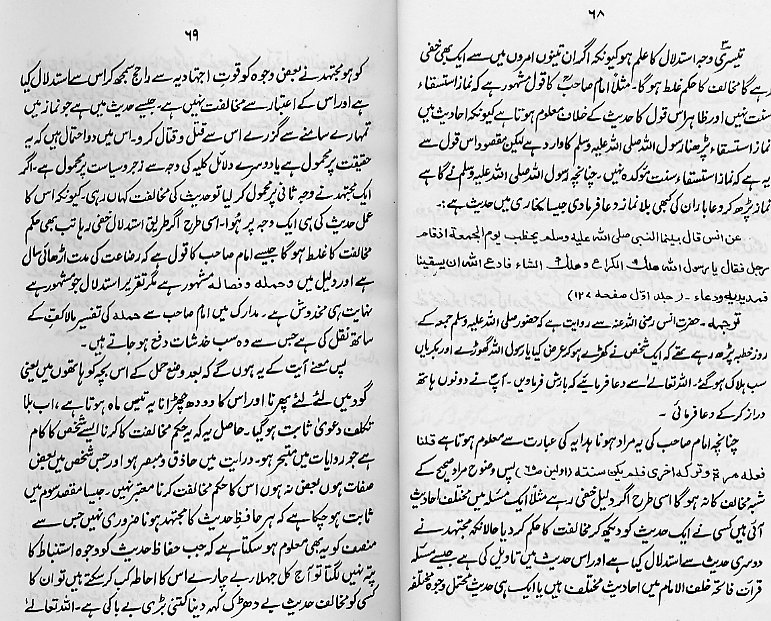 ۶۸
تیسری وجہ استدلال کا علم ہو کیونکہ اگر ان تینوں امروں میں سے ایک بھی خفی
رہے گا مخالفت کا حکم غلط ہو گا۔ مثلاً امام صاحبؒ کا قول مشہور ہے کہ نماز استسقاء
سنت نہیں اور ظاہراً اس قول کا حدیث کے خلاف معلوم ہوتا ہے کیونکہ احادیث میں
نماز استسقاء پڑھنا رسول اللہ صلی اللہ علیہ وسلم کا وارد ہے لیکن مقصود اس قول سے
یہ ہے کہ نماز استسقاء سنت مؤکدہ نہیں، چنانچہ رسول اللہ صلی اللہ علیہ وسلم نے گاہے
نماز پڑھ کر دعا باران کی کبھی بلا نماز دعا فرما دی جیسا بخاری میں حدیث ہے:۔
عن انس قال بینما النبی صلی اللہ علیہ وسلم یخطب یوم الجمعة اذ قام
رجل فقال یا رسول اللہ ھلک الکراع و ھلک الشاء فادع اللہ ان یسقینا
فمد یدیہ ودعاء۔ (جلد اوّل صفحہ ۱۲۷)
ترجمہ۔ حضرت انس رضی اللہ عنہ سے روایت ہے کہ حضور صلی اللہ علیہ وسلم جمعہ کے
روز خطبہ پڑھ رہے تھے کہ ایک شخص نے کھڑے ہو کر عرض کیا یا رسول اللہ گھوڑے اور بکریاں
سب ہلاک ہو گئے۔ اللہ تعالےٰ سے دعا فرمائیے کہ بارش فرماویں۔ آپؐ نے دونوں ہاتھ
دراز کر کے دعا فرمائی۔
چنانچہ امام صاحب کی یہ مراد ہونا ہدایہ کی عبارت سے معلوم ہوتا ہے قلنا
فعلہ مرة و ترکہ اخری فلم یکن سنتہ (اولین ص۱۵۶) پس وضوح مراد صحیح کے
شبہ مخالفت کا نہ ہو گا اسی طرح اگر دلیل خفی رہے مثلاً ایک مسئلہ میں مختلف احادیث
آئی ہیں کسی نے ایک حدیث کو دیکھ کر مخالفت کا حکم کر دیا حالانکہ مجتہد نے
دوسری حدیث سے استدلال کیا ہے اور اس حدیث میں تاویل کی ہے جیسے مسئلہ
قرأت فاتحہ خلف الامام میں احادیث مختلف ہیں یا ایک ہی حدیث محتمل وجوہ مختلفہ
۶۹
کو ہو مجتہد نے بعض وجوہ کو قوتِ اجتہادیہ سے راجح سمجھ کر اس سے استدلال کیا
ہے اور اس کے اعتبار سے مخالفت نہیں ہے۔ جیسے حدیث میں ہے جو نماز میں
تمہارے سامنے سے گزرے اس سے قتل و قتال کرو۔ اس میں دو احتمال ہیں کہ یہ
حقیقت پر محمول ہے یا دوسرے دلائل کلیہ کی وجہ سے زجر و سیاست پر محمول ہے۔ اگر
ایک مجتہد نے وجہ ثانی پر محمول کر لیا تو حدیث کی مخالفت کہاں رہی، کیونکہ اس کا
عمل حدیث کی ہی ایک وجہ پر ہوا۔ اسی طرح اگر طریق استدلال خفی رہا تب بھی حکم
مخالفت کا غلط ہو گا جیسے امام صاحب کا قول ہے کہ رضاعت کی مدت اڑھائی سال
ہے اور دلیل میں وحملہ وفصالہ مشہور ہے مگر تقریر استدلال جو مشہور ہے
نہایت ہی مخدوش ہے۔ مدارک میں امام صاحب سے حملہ کی تفسیر مالاکف کے
ساتھ نقل کی ہے جس سے وہ سب خدشات دفع ہو جاتے ہیں۔
پس معنے آیت کے یہ ہوں گے کہ بعد وضع حمل کے اس بچہ کو ہاتھوں میں یعنی
گود میں لئے لئے پھرنا اور اس کا دودھ چھڑانا یہ تیس ماہ ہوتا ہے، اب بلا
تکلف دعویٰ ثابت ہو گیا۔ حاصل یہ کہ یہ حکم مخالفت کا کرنا ایسے شخص کا کام
ہے جو روایات میں متبحر ہو۔ درایت میں حاذق و مبصر ہو اور جس شخص میں بعض
صفات ہوں بعض نہ ہوں اس کا حکم مخالفت کرنا معتبر نہیں۔ جیسا مقصد سوم میں
ثابت ہو چکا ہے کہ ہر حافظِ حدیث کا مجتہد ہونا ضروری نہیں جس سے
منصف کو یہ بھی معلوم ہو سکتا ہے کہ جب حفاظ حدیث کو وجوہ استنباط کا
پتہ نہیں لگتا تو آج کل جہلا بے چارے اس کا احاطہ کب کر سکتے ہیں تو ان کا
کسی کو مخالف حدیث بے دھڑک کہہ دینا کتنی بڑی بے باکی ہے۔ اللہ تعالےٰ